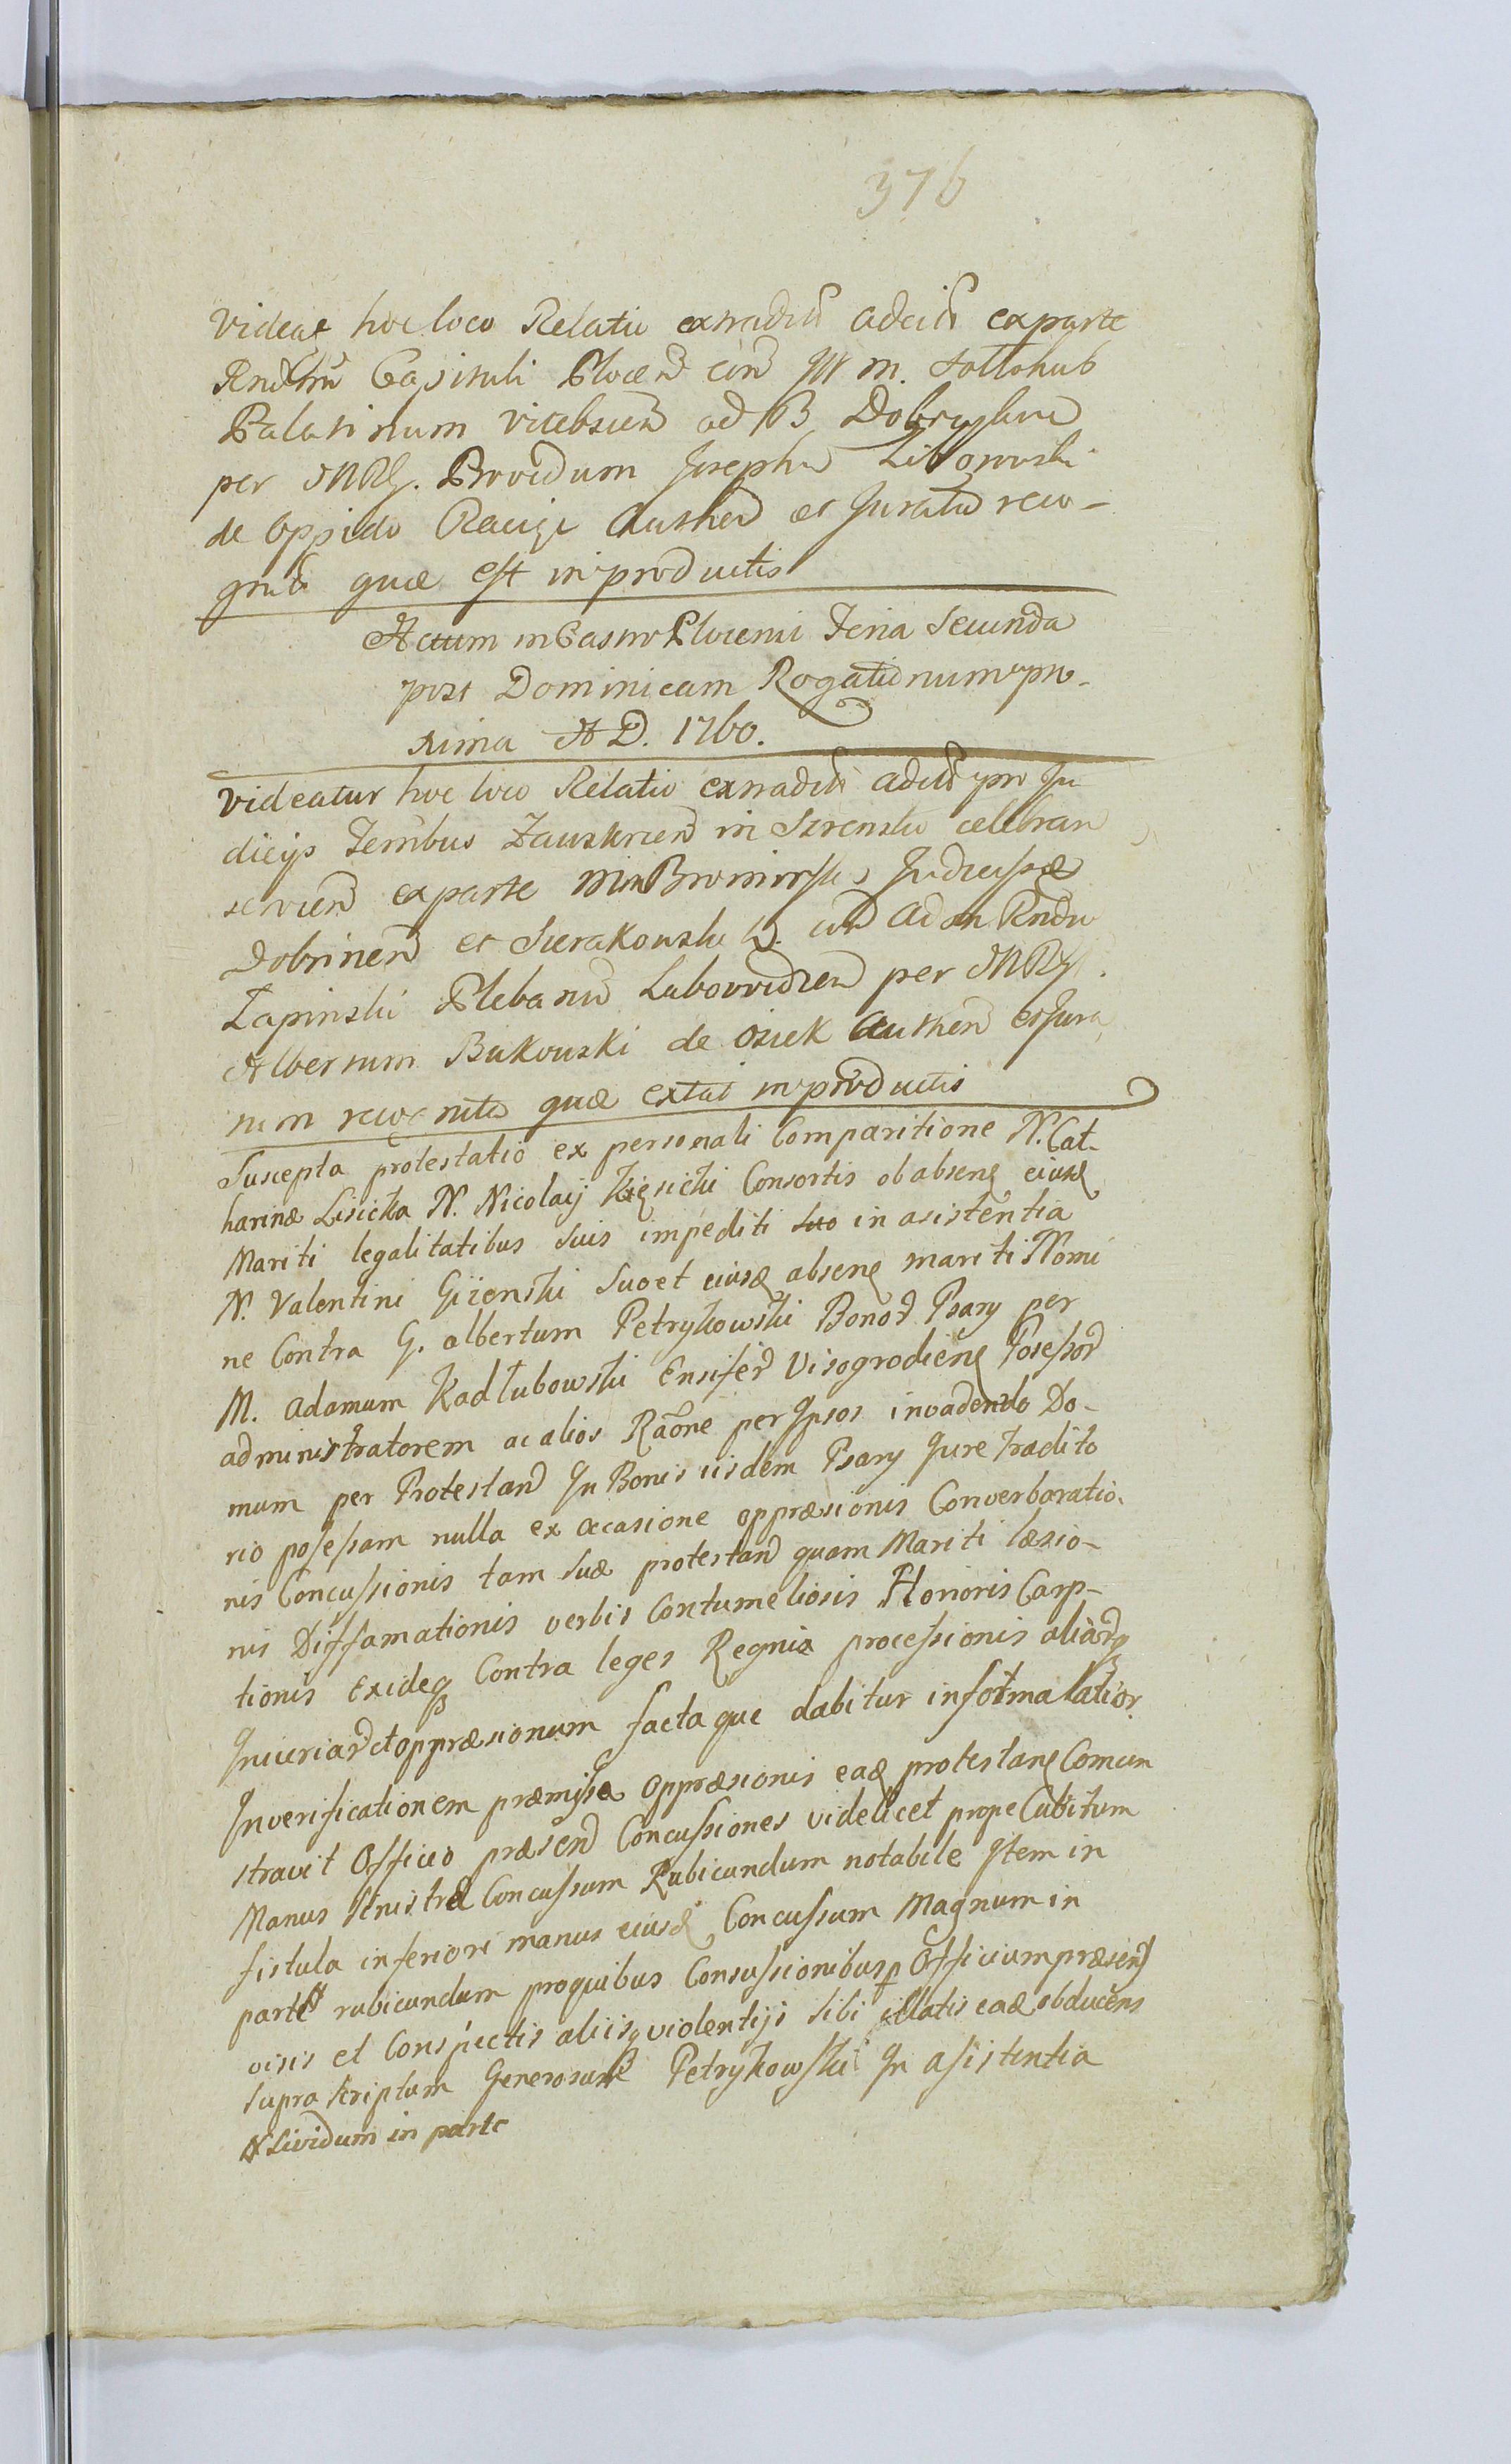 376
Videat hoc loco Relatio extraditi adcit exparte
Rndmi Capituli Plocen con M. Sollohub
Palatinum Vitebscen ad B Dobrzyskow
per MRG. Providum Josephu Libowski
de Oppido Raciąz Authen et Juratu reco-
gnita quæ est in productis
Actum in Castro Plocensi Feria Secunda
post Dominicam Rogationum pro-
xima A D. 1760.
Videatur hoc loco Relatio extraditi adcit pro Ju
dicijs Terribus Zauskrien in Szrensko celebran
servien exparte Bromirski Judicis
Dobrinen et Sierakowski con Adm Rndu
Łapinski Plebanu Lubovidzen per MRG.
Albertum Bukowski de Osiek Authen et Jura
tum recognita quæ extat in productis
Suscepta protestatio ex personali Comparitione N. Cat-
harinæ Lisicka N. Nicolaij Kięsicki Consortis ob absenę eiusę
Mariti legalitatibus Suis impediti suo in asistentia
N. Valentini Giżenski Suo et eiusę absenę mariti Nomi
ne Contra G. albertum Petrykowski Bonor Psary per
M. Adamum Kadłubowski Ensifer Visogrodienę Posessor
administratorem ac alios Raone per Ipsos invadendo Do-
mum per Protestan In Bonis iisdem Psary Jure tradito
rio posessam nulla ex occasione oppræsionis Converberatio-
nis Concussionis tam Suæ protestan quam Mariti læsio-
nis Diffamationis verbis Contumeliosis Honoris Carp-
tionis Exideq Contra leges Regnia processionis aliarq
Iniuriar et oppræsionum facta que dabitur in forma latior
In verificationem præmissæ oppræsionis eaę protestanę Comun
stravit Officio præsen Concussiones videlicet prope Cubitum
Manus Sinistræ Concussum Rubicundum notabile Item in
fistula inferiori manus eiusę Concussum Magnum in
parte rubicundum proquibus Consussionibus p Officium præsens
visis et Conspectis aliisq violentijs Sibi illatis eaę obducens
Supra Scriptum Generosum Petrykowski In asistentia
# Lividum in parte